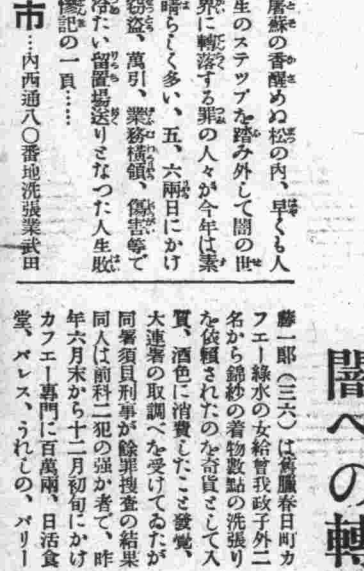 闇への轉
屠蘇の香醒めぬ松の内、早くも人
生のステップを踏み外して闇の世
界に轉落する罪の人々が今年は素
晴らしく多い、五、六兩日にかけ
竊盜、萬引、業務横領、傷害等で
冷たい留置場送りとなつた人生敗
惨記の一頁……
市…内西通八〇番地洗張業武田
藤一郎(三六)は舊臘春日町カ
フエー綠水の女給曾我政子外二
名から錦紗の着物數點の洗張り
を依頼されたのを奇貨として入
質、酒色に消費したこと發覺、
大連署の取調べを受けてゐたが
同署須貝刑事が餘罪搜査の結果
同人は前科二犯の强か者で、昨
年六月末から十二月初旬にかけ
カフエー專門に百萬兩、日活食
堂、パレス、うれしの、パリー